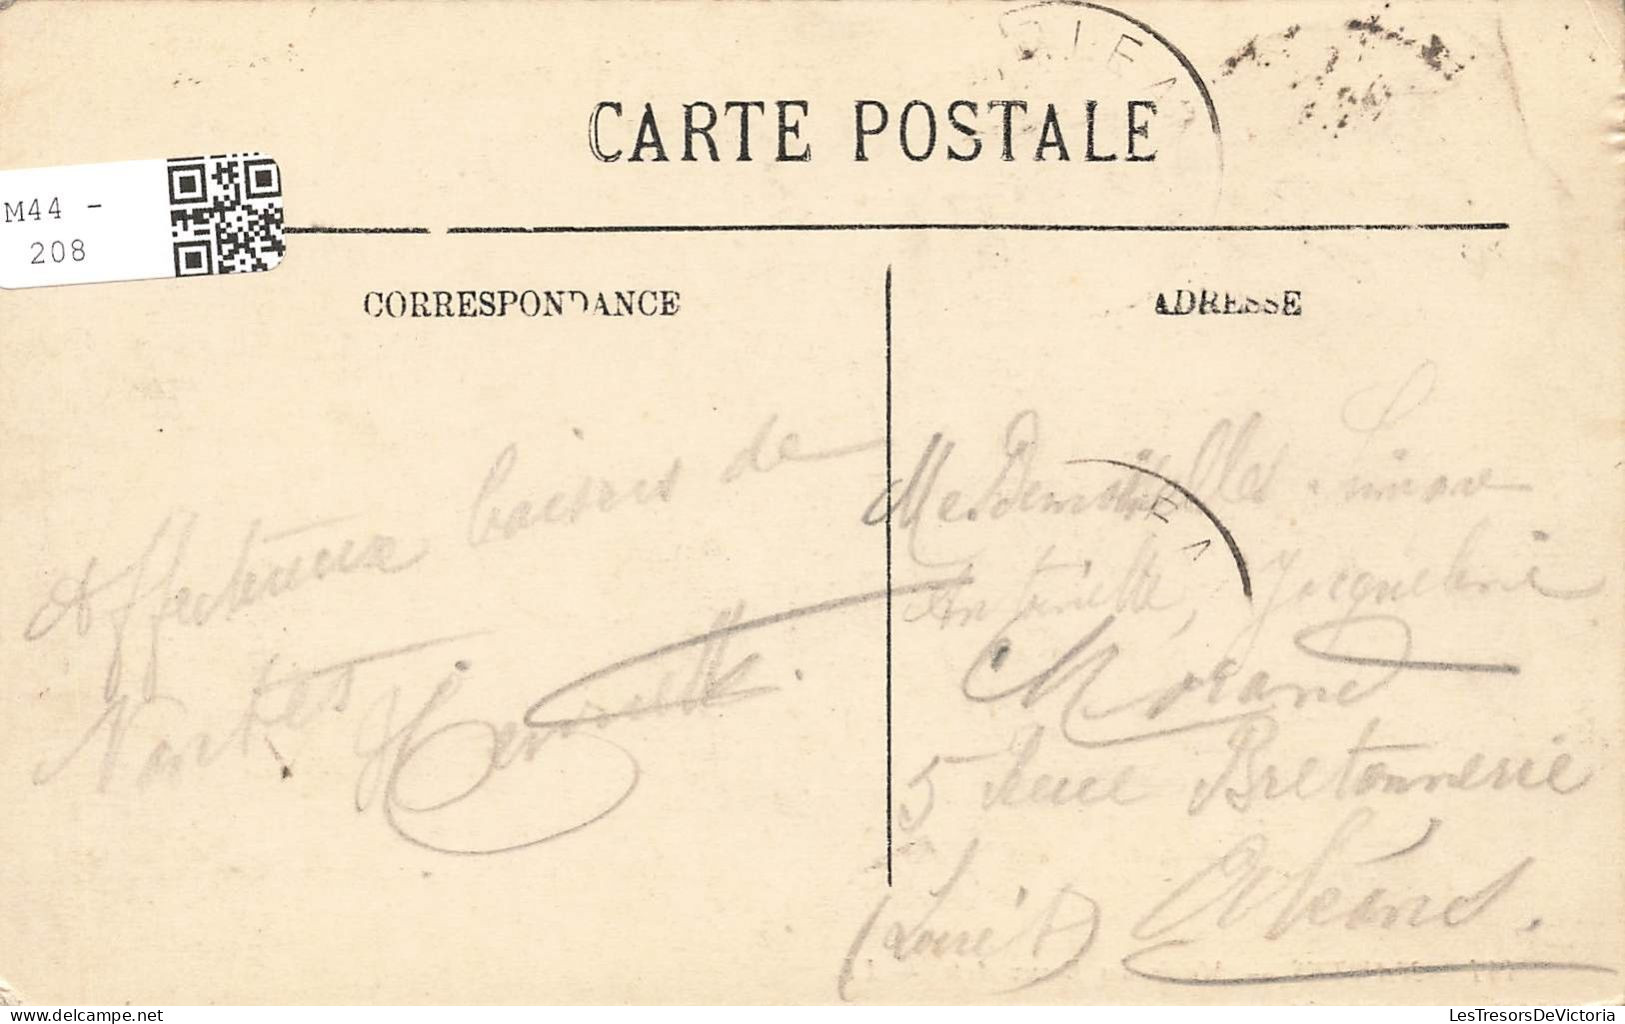 CARTE POSTALE
M44 -
208
CORRESPONDANCE
ADRESSE
Affectueux baisers de
Nantes Henriette.
Mesdemoiselles Simone
Antoinette, Jacqueline
Morand
5 Rue Bretonnerie
(Loiret) Orléans.
delcampe.net
LesTresorsDeVictoria